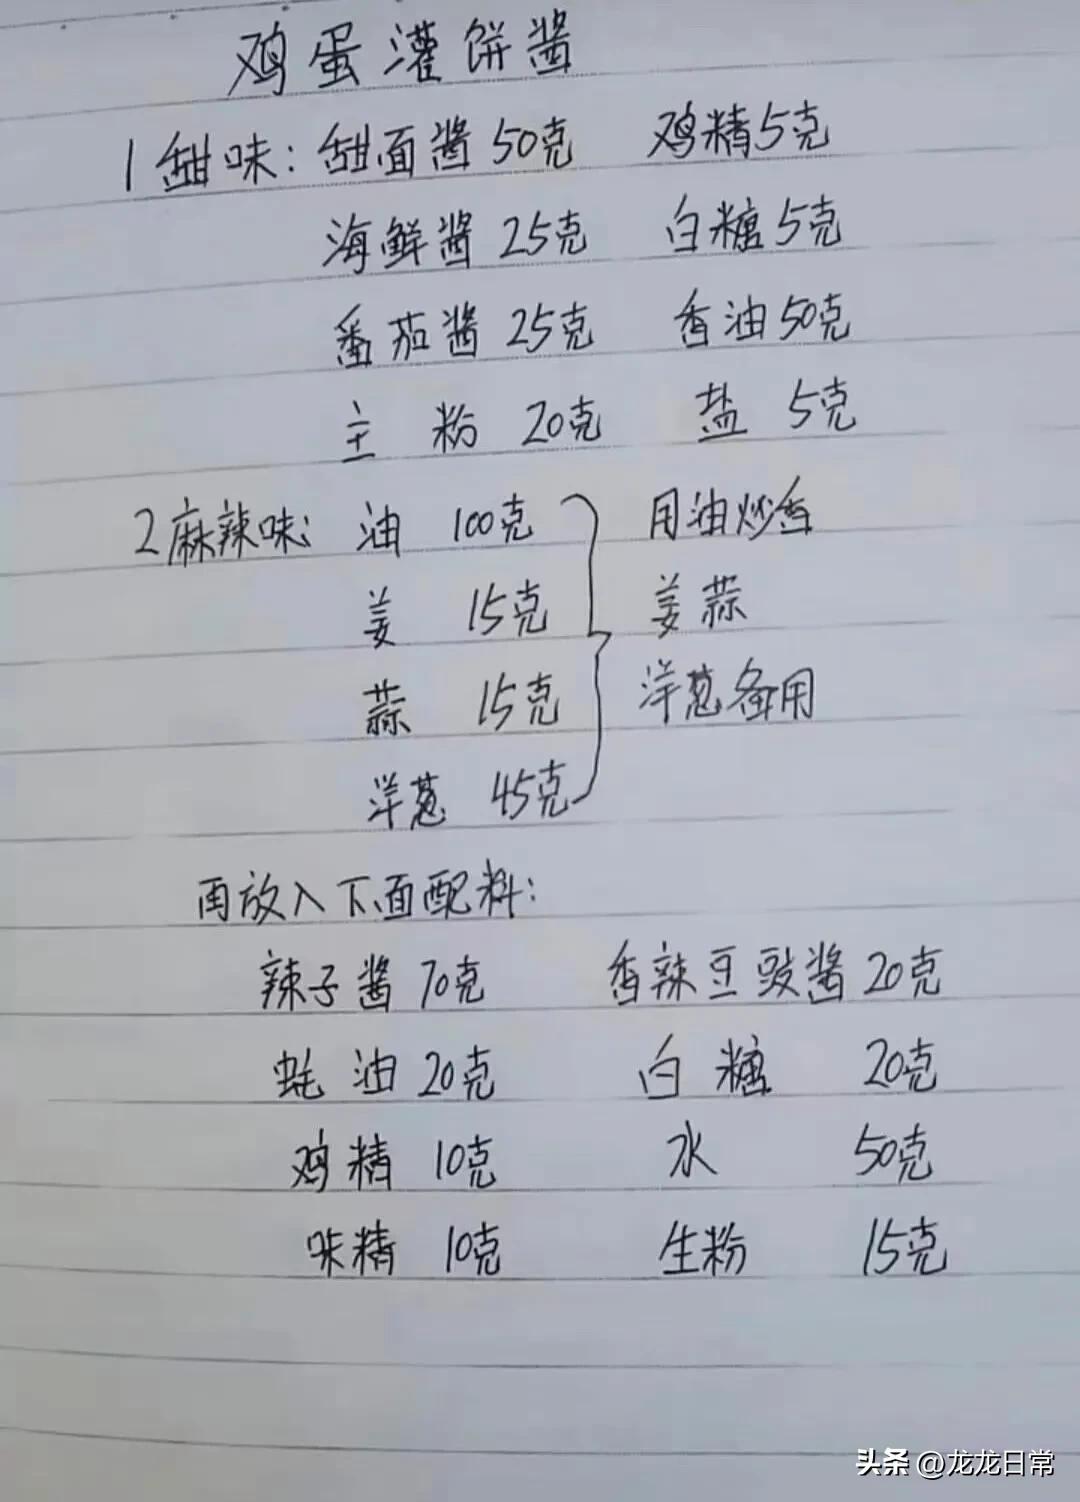 鸡蛋灌饼酱
1 甜味：甜面酱 50克 鸡精5克
海鲜酱 25克 白糖5克
番茄酱 25克 香油50克
主粉 20克 盐 5克
2麻辣味：油 100克 用油炒香
姜 15克 姜蒜
蒜 15克 洋葱备用
洋葱 45克
再放入下面配料：
辣子酱 70克 香辣豆豉酱 20克
蚝油 20克 白糖 20克
鸡精 10克 水 50克
味精 10克 生粉 15克
头条 @龙龙日常